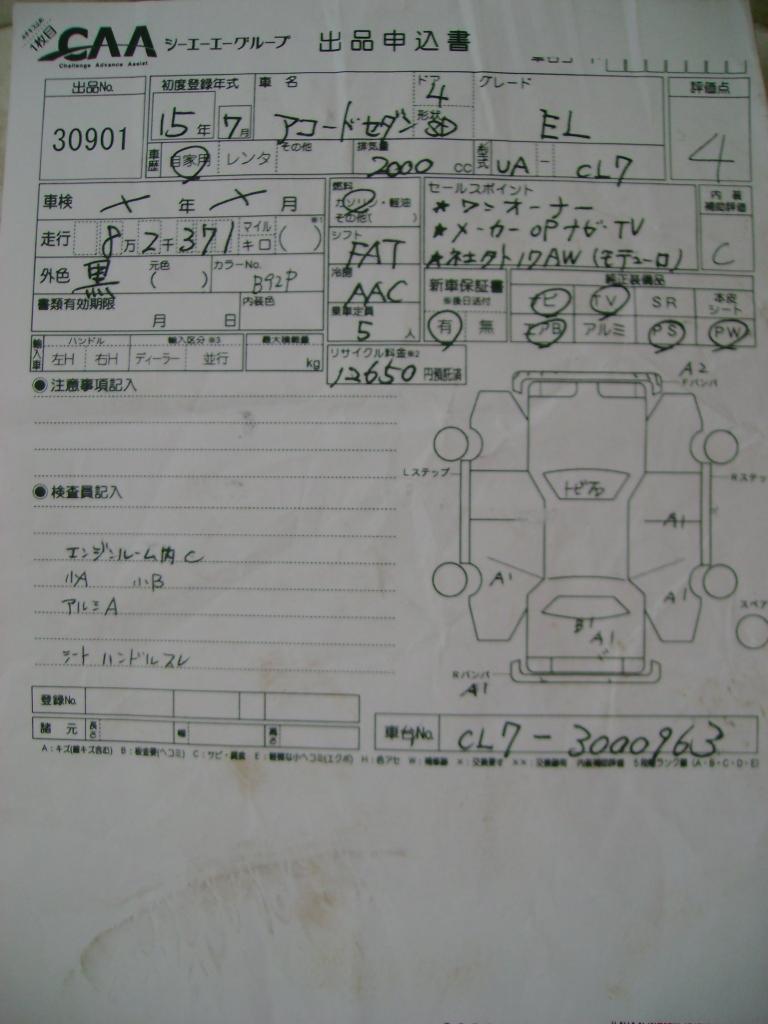 1枚目
CAA シーエーエーグループ 出品申込書
Challenge Advance Assist
出品No. 初度登録年式 車名 ドア グレード 評価点
30901 15年 7月 アコードセダン 4 形状 EL 4
車歴 自家用 レンタ その他 排気量 2000cc 型式 UA - CL7
車検 × 年 × 月
燃料 ガソリン・軽油 その他( )
セールスポイント
内装補助評価
走行 8万2千371 マイル キロ ( )
★ワンオーナー
★メーカーOPナビ・TV
シフト FAT
C
外色 黒 元色( ) カラーNo. B92P
冷房 AAC
新車保証書 ※後日送付 有 無
純正装備品
ナビ TV SR 本皮シート
エアB アルミ PS PW
書類有効期限 月 日 内装色
乗車定員 5人
輸入車 ハンドル 左H 右H 輸入区分※3 ディーラー 並行 最大積載量 kg
リサイクル料金※2 12650 円預託済
●注意事項記入
A2
Fバンパ
Lステップ Rステッ
トビ石
●検査員記入
A1
エンジンルーム内 C
小A 小B
A1
アルミA
A1
スペア
B1
A1
シート ハンドルスレ
Rバンパ
A1
登録No.
諸元 長さ 幅 高さ
車台No. CL7-3000963